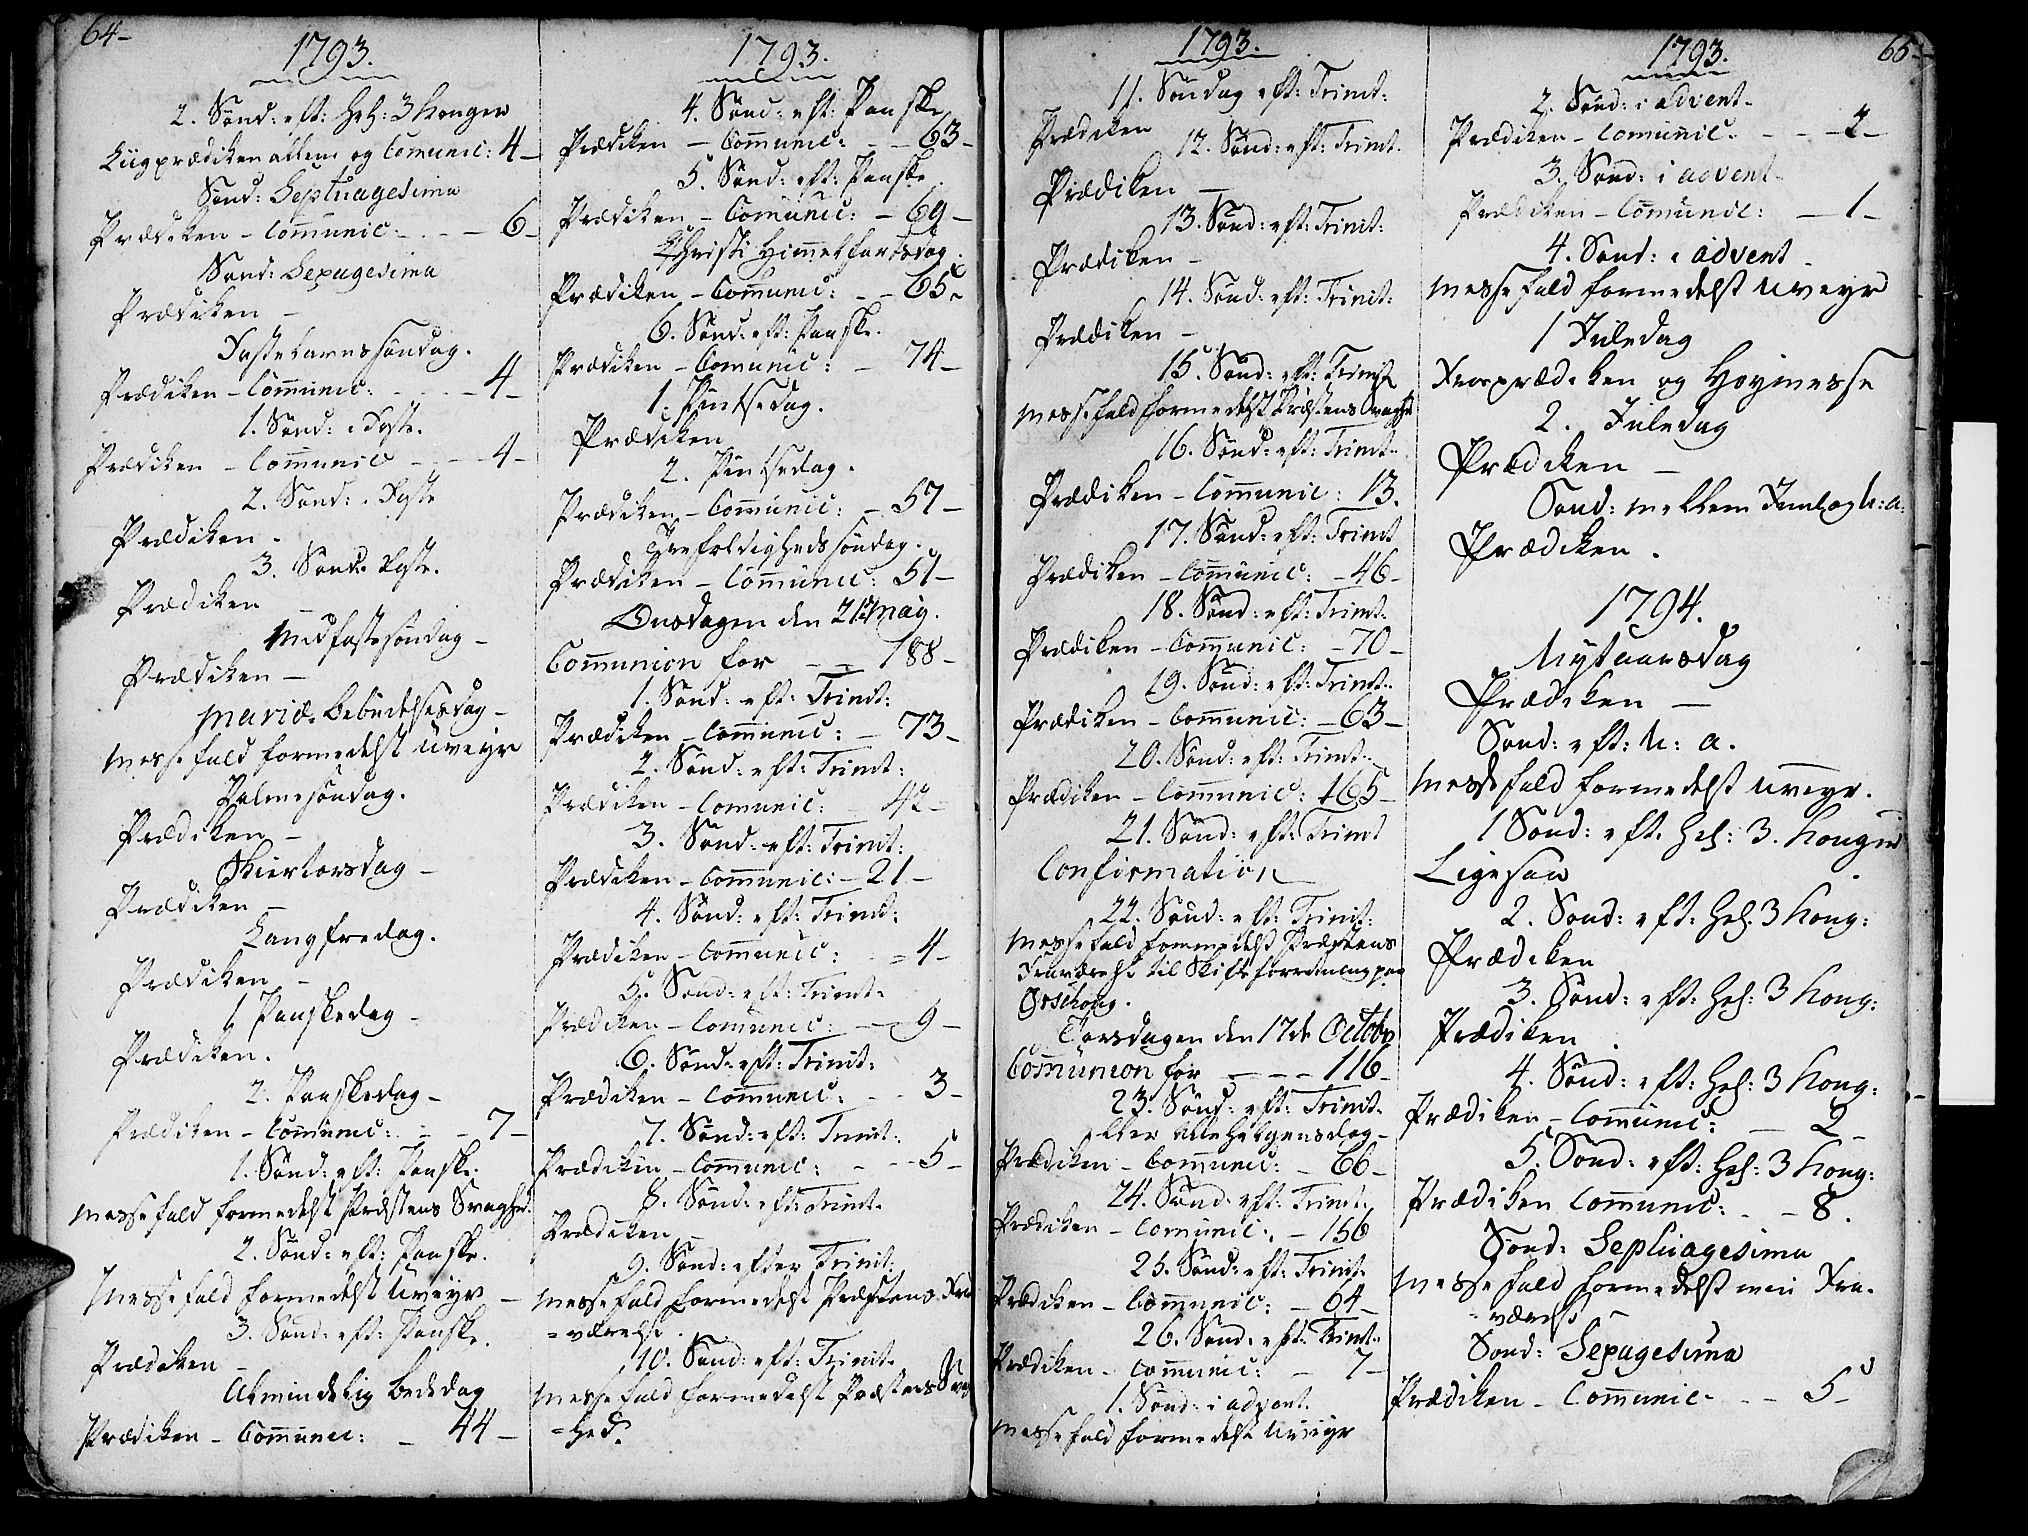 64-
1793.
2. Sønd: eft: Hel: 3 Konger
Liigprædiken allene og Comunic: 4-
Sønd: Septuagesima
Prædiken - Communic: - - - 6-
Sønd: Sexagesima
Prædiken -
Fastelavnssøndag.
Prædiken - Communic: - - - 4-
1. Sønd: i Faste.
Prædiken - Communic - - - 4-
2. Sønd: i Faste
Prædiken -
3. Sønd: i Faste.
Prædiken -
Midfastesøndag -
Prædiken -
Mariæ Bebudelsesdag -
Messefald formedelst Uveyr
Palmesøndag.
Prædiken -
Skiertorsdag -
Prædiken -
Langfredag.
Prædiken -
1 Paaskedag -
Prædiken.
2. Paaskedag -
Prædiken - Communic: - - 7-
1. Sønd: eft: Paaske.
Messefald formedelst Præstens Svaghed.
2. Sønd: eft: Paaske.
Messefald formedelst Uveyr -
3. Sønd: eft: Paaske.
Prædiken -
Almindelig Bededag
Prædiken - Communic: - 44-
1793.
4. Sønd: eft: Paaske
Prædiken - Communic: - - 63-
5. Sønd: eft: Paaske.
Prædiken - Comunic: - 69-
Christi Himmelfartsdag.
Prædiken - Communic: - - 65-
6. Sønd: eft: Paaske.
Prædiken - Comunic: - 74-
1. Pintsedag.
Prædiken
2. Pintsedag.
Prædiken - Communic: - 57-
Trefoldigheds søndag.
Prædiken - Communic: 51-
Onsdagen den 21de May.
Communion for - - 188-
1. Sønd: eft: Trinit:
Prædiken - Communic: - 73-
2. Sønd: eft: Trinit:
Prædiken - Comunic: 42-
3. Sønd: eft: Trinit:
Prædiken - Communic: - 21-
4. Sønd: eft: Trinit:
Prædiken - Communic: - - 4-
5. Sønd: eft: Trinit:
Prædiken - Comunic: - - 9-
6. Sønd: eft: Trinit:
Prædiken - Communic: - - 3-
7. Sønd: eft: Trinit:
Prædiken - Communic: - - - 5-
8. Sønd: eft: Trinit.
Prædiken -
9. Sønd: efter Trinit:
Messefald formedelst Præstens Fra
=værelse.
10. Sønd: eft: Trinit.
Messefald formedelst Præstens Svag
=hed.
1793.
11. Søndag eft: Trinit:
Prædiken
12. Sønd: eft: Trinit.
Prædiken -
13. Sønd: eft: Trinit:
Prædiken -
14. Sønd: eft: Trinit:
Prædiken -
15. Sønd: eft: Trinit
Messefald formedelst Præstens Svaghed
16. Sønd: eft: Trinit.
Prædiken - Communic: 13.
17. Sønd: eft: Trinit
Prædiken - Communic: - 46-
18. Sønd: eft: Trinit.
Prædiken - Communic: - 70-
19. Sønd: eft: Trinit.
Prædiken - Communic: - 63-
20. Sønd: eft: Trinit.
Prædiken - Communic: 165-
21. Sønd: eft: Trinit
Confirmation
22. Sønd: eft: Trinit:
Messefald formedelst Præstens
Fraværelse til Skifteforretning paa
Torsdagen den 17de Octobr
Communion for - - - 116-
23. Sønd: eft: Trinit.
eller Alle Helgensdag -
Prædiken - Communic: - 66-
24. Sønd: eft: Trinit.
Prædiken - Comunic: - 156
25. Sønd: eft: Trinit.
Prædiken - Communic: - 64-
26. Sønd: eft: Trinit.
Prædiken - Communic: - 7-
1. Sønd: i advent.
Messefald formedelst Uveyr
65-
1793.
2. Sønd: i advent-
Prædiken - Comunic: - - - 2-
3. Sønd: i advent-
Prædiken - Comunic: - 1-
4. Sønd: i advent
Messefald formedelst Uveyr
1 Juledag
Froeprædiken og Høymesse
2. Juledag
Prædiken -
Sønd: mellem Juul og N: a:
Prædiken.
1794.
Nytaarsdag
Prædiken -
Sønd: eft: N: a.
Messefald formedelst Uveyr.
1 Sønd: eft. Hel: 3. Konger
Ligesaa
2. Sønd: eft: Hel. 3 Kong:
Prædiken
3. Sønd: eft: Hel: 3 Kong:
Prædiken.
4. Sønd: eft: Hel: 3 Kong:
Prædiken - Communic: - 2-
5. Sønd: eft: Hel: 3 Kong:
Prædiken Communic: - - 8.
Sønd: Septuagesima
Messefald formedelst min Fra-
-værelse
Sønd: Sexagesima
Prædiken - Communic - - - 5-